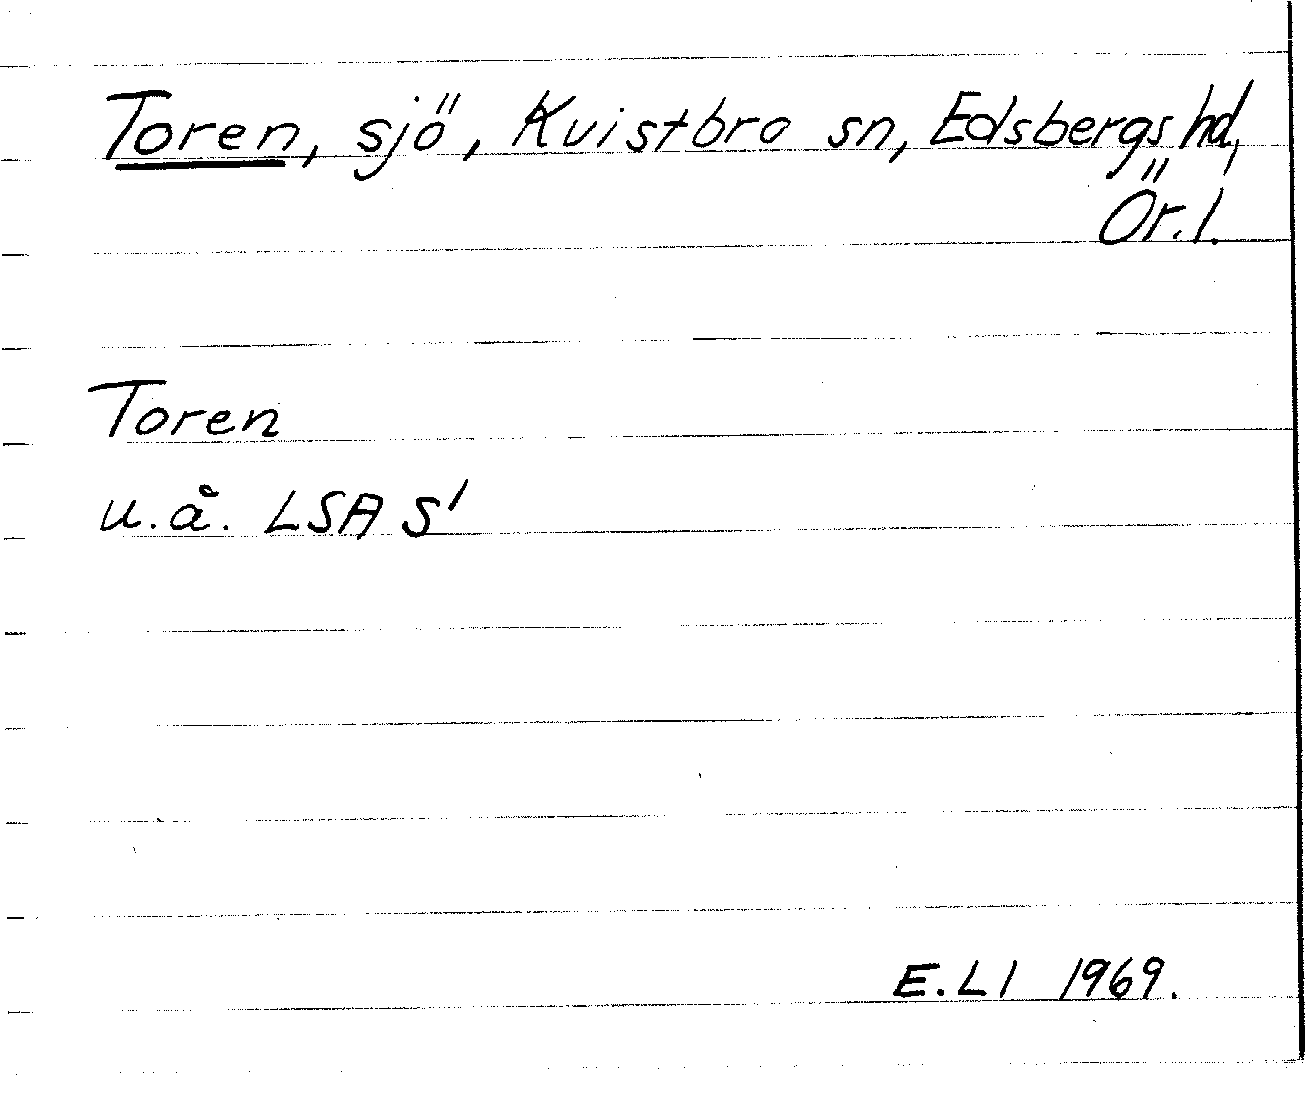 Toren, sjö, Kvistbro sn, Edsbergs hd,
Ör. l.
Toren
u. å. LSA S'
E. Ll 1969.